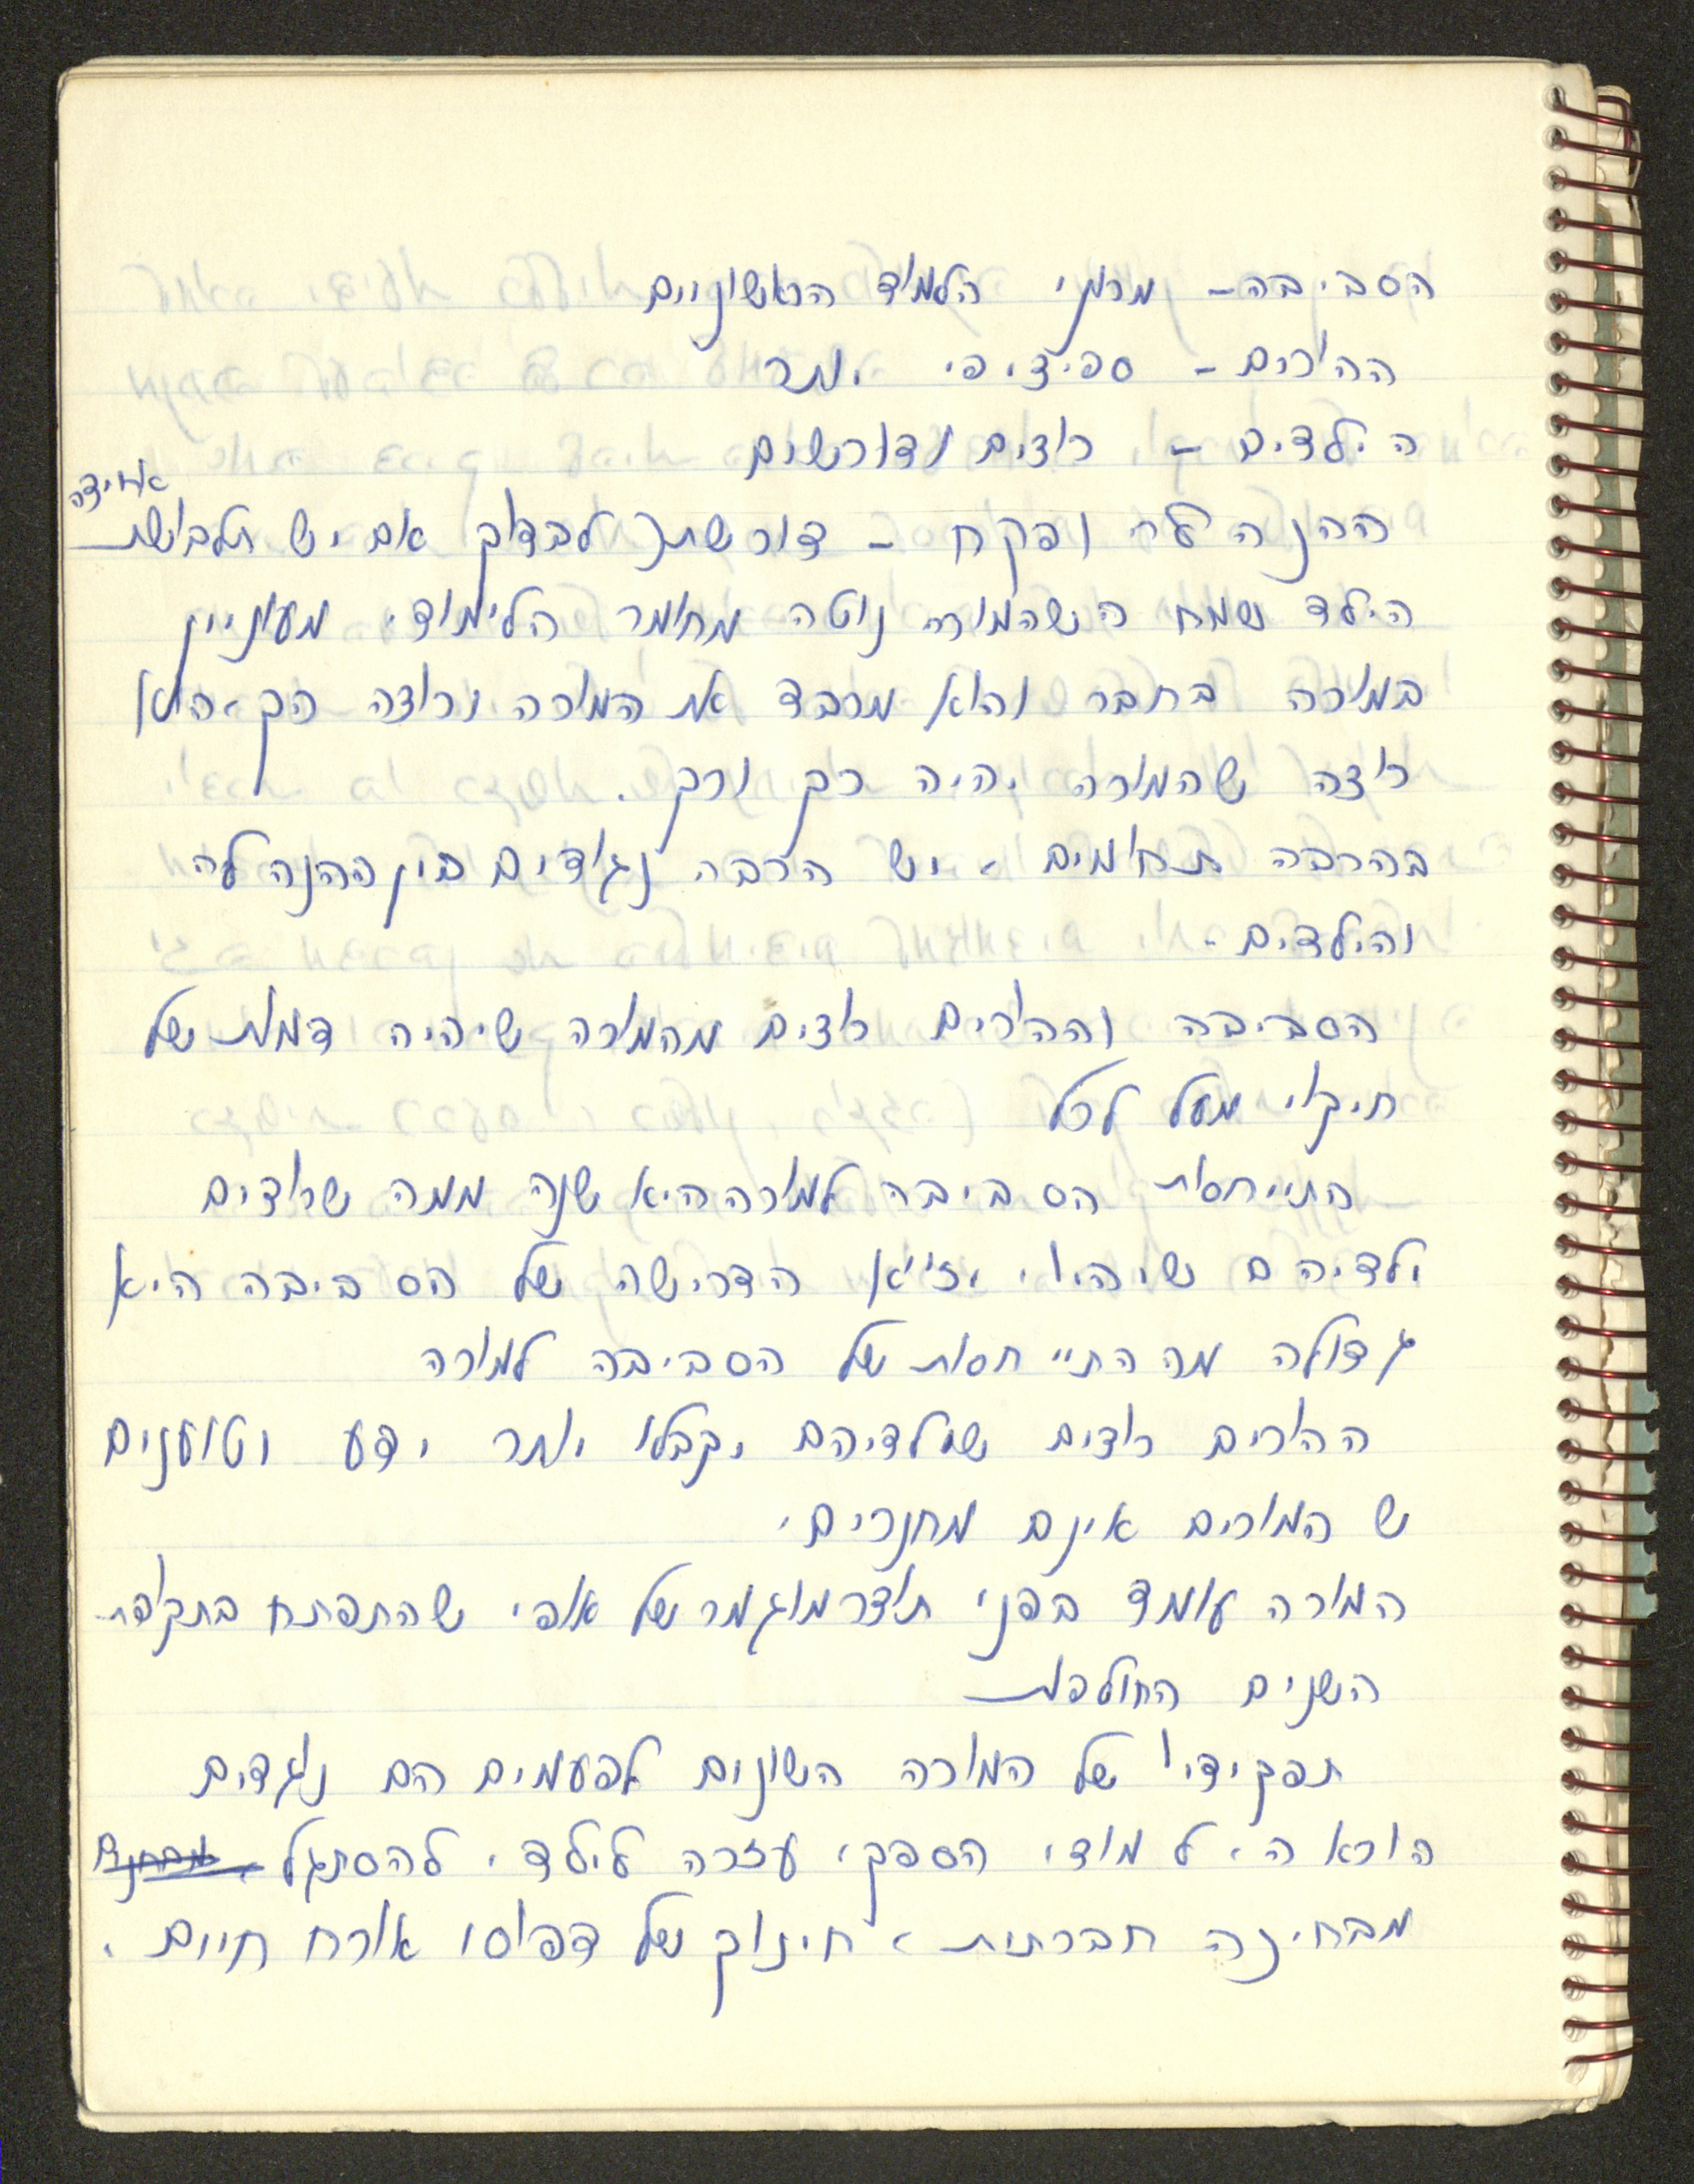 הסביבה - מרתי הלמוד הראשוניים
ההורים - ספיציפי יותר
הילדים - רוצים ודורשים
ההנהלה ופקח - דורשת לבדוק אם יש תלבושת אחידה
הילד שמח כשהמורה נוטה מחומר הלימודי מעוניין
במורה כחבר והוא מכבד את המורה ורוצה רק, הוא
רוצה שהמורה יהיה רק ורק.
בהרבה תחומים, יש הרבה נגודים בין ההנהלה
והילדים.
הסביבה וההורים רוצים מהמורה שיהיה דמות של
חיקוי מעל לכל
התייחסות הסביבה למורה היא שונה ממה שרוצים
ילדיהם שיהיו, יוצא הדרישה של הסביבה היא
גדולה מההתייחסות של הסביבה למורה
ההורים רוצים שילדיהם יקבלו יותר ידע וטוענים
שהמורים אינם מחנכים.
המורה עומד בפני תוצר מוגמר של אופי שהתפתח בתקופת
השנים החולפות
תפקידיו של המורה השונים לפעמים הם נוגדים
הוראה, למודי הספק, עזרה לילד, להסתגל,
מבחינה חברתית, חינוך של דפוסו אורח חיים.